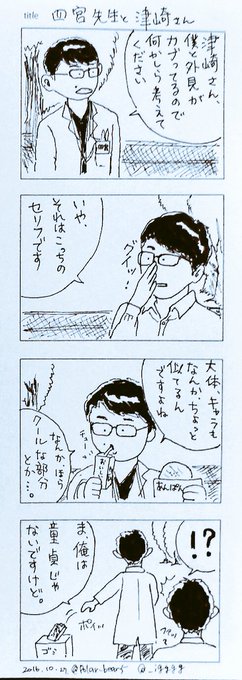 title 四宮先生と津崎さん
津崎さん、
僕、外見が
カブってるので
何かしら考えて
ください
四宮
いや、
それはこっちの
セリフです
グイッ…
大体、キャラも
なんか、ちょっと
似てるん
ですよね
チュー
おしるこ
あんぱん
なんかほら
クールな部分
とか…。
!?
ま、俺は
童貞じゃ
ないですけど。
ポイッ
ゴミ
2016.10.27 @Polar_bear5